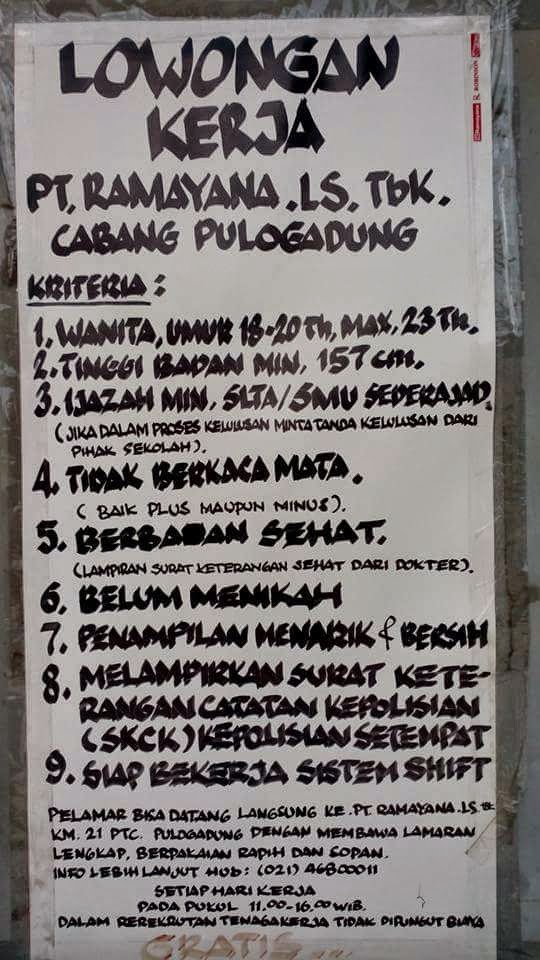 LOWONGAN
KERJA
PT. RAMAYANA .LS. TbK.
CABANG PULOGADUNG
KRITERIA :
1. WANITA, UMUR 18-20 Th, MAX, 23 Th.
2. TINGGI BADAN MIN, 157 cm.
3. IJAZAH MIN, SLTA/SMU SEDERAJAD.
(JIKA DALAM PROSES KELULUSAN MINTA TANDA KELULUSAN DARI
PIHAK SEKOLAH).
4. TIDAK BERKACA MATA.
( BAIK PLUS MAUPUN MINUS).
5. BERBADAN SEHAT.
(LAMPIRAN SURAT KETERANGAN SEHAT DARI DOKTER).
6. BELUM MENIKAH
7. PENAMPILAN MENARIK & BERSIH
8. MELAMPIRKAN SURAT KETE-
RANGAN CATATAN KEPOLISIAN
(SKCK) KEPOLISIAN SETEMPAT
9. SIAP BEKERJA SISTEM SHIFT
PELAMAR BISA DATANG LANGSUNG KE. PT. RAMAYANA .LS. TbK
KM. 21 PTC. PULOGADUNG DENGAN MEMBAWA LAMARAN
LENGKAP, BERPAKAIAN RAPIH DAN SOPAN.
INFO LEBIH LANJUT HUB: (021) 46800011
SETIAP HARI KERJA
PADA PUKUL 11.00-16.00 WIB.
DALAM REREKRUTAN TENAGA KERJA TIDAK DIPUNGUT BIAYA
GRATIS ...
Ramayana R ROBINSON